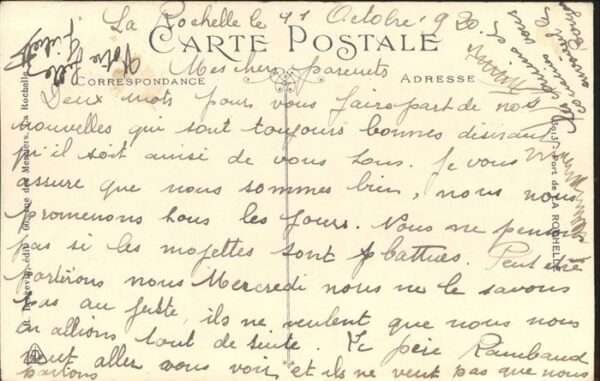 La Rochelle le 11 Octobre 1920.
CARTE POSTALE
CORRESPONDANCE
ADRESSE
Mes chers parents
Deux mots pour vous faire part de nos
nouvelles qui sont toujours bonnes désirant
qu'il soit ainsi de vous tous. Je vous
assure que nous sommes bien, nous nous
promenons tous les jours. Vous ne pensez
pas si les mojettes sont battues. Peut être
partirons nous Mercredi nous ne le savons
pas au juste, ils ne veulent que nous nous
en allions tout de suite. Le père Raimbaud
veut aller vous voir et ils ne veut pas que nous
partons
Votre fille
Port de LA ROCHELLE
La Rochelle